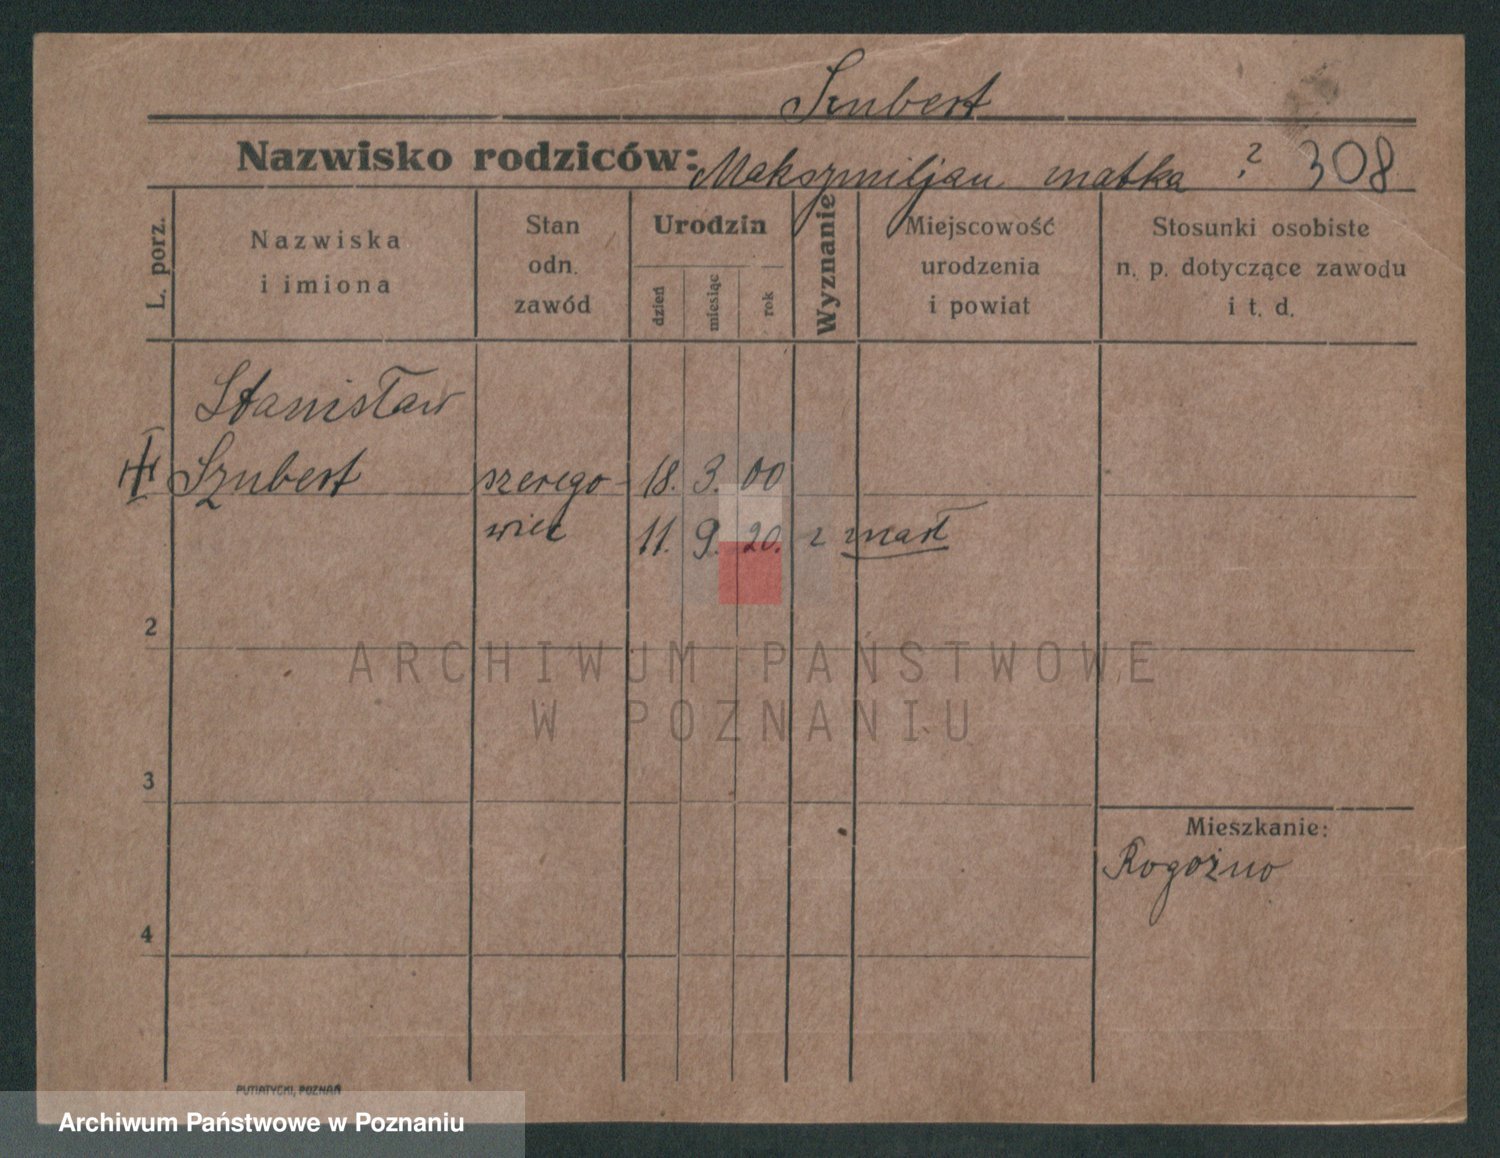 Szubert
Nazwisko rodziców: Maksymiljan matka ? 308
L. porz.
Nazwiska
i imiona
Stan
odn.
zawód
Urodzin
dzień
miesiąc
rok
Wyznanie
Miejscowość
urodzenia
i powiat
Stosunki osobiste
n. p. dotyczące zawodu
i t. d.
Stanisław
Szubert szerego- 18. 3. 00
wiec 11. 9. 20. zmarł
2
ARCHIWUM PAŃSTWOWE
W POZNANIU
3
Mieszkanie:
Rogoźno
4
PUTIATYCKI, POZNAŃ
Archiwum Państwowe w Poznaniu